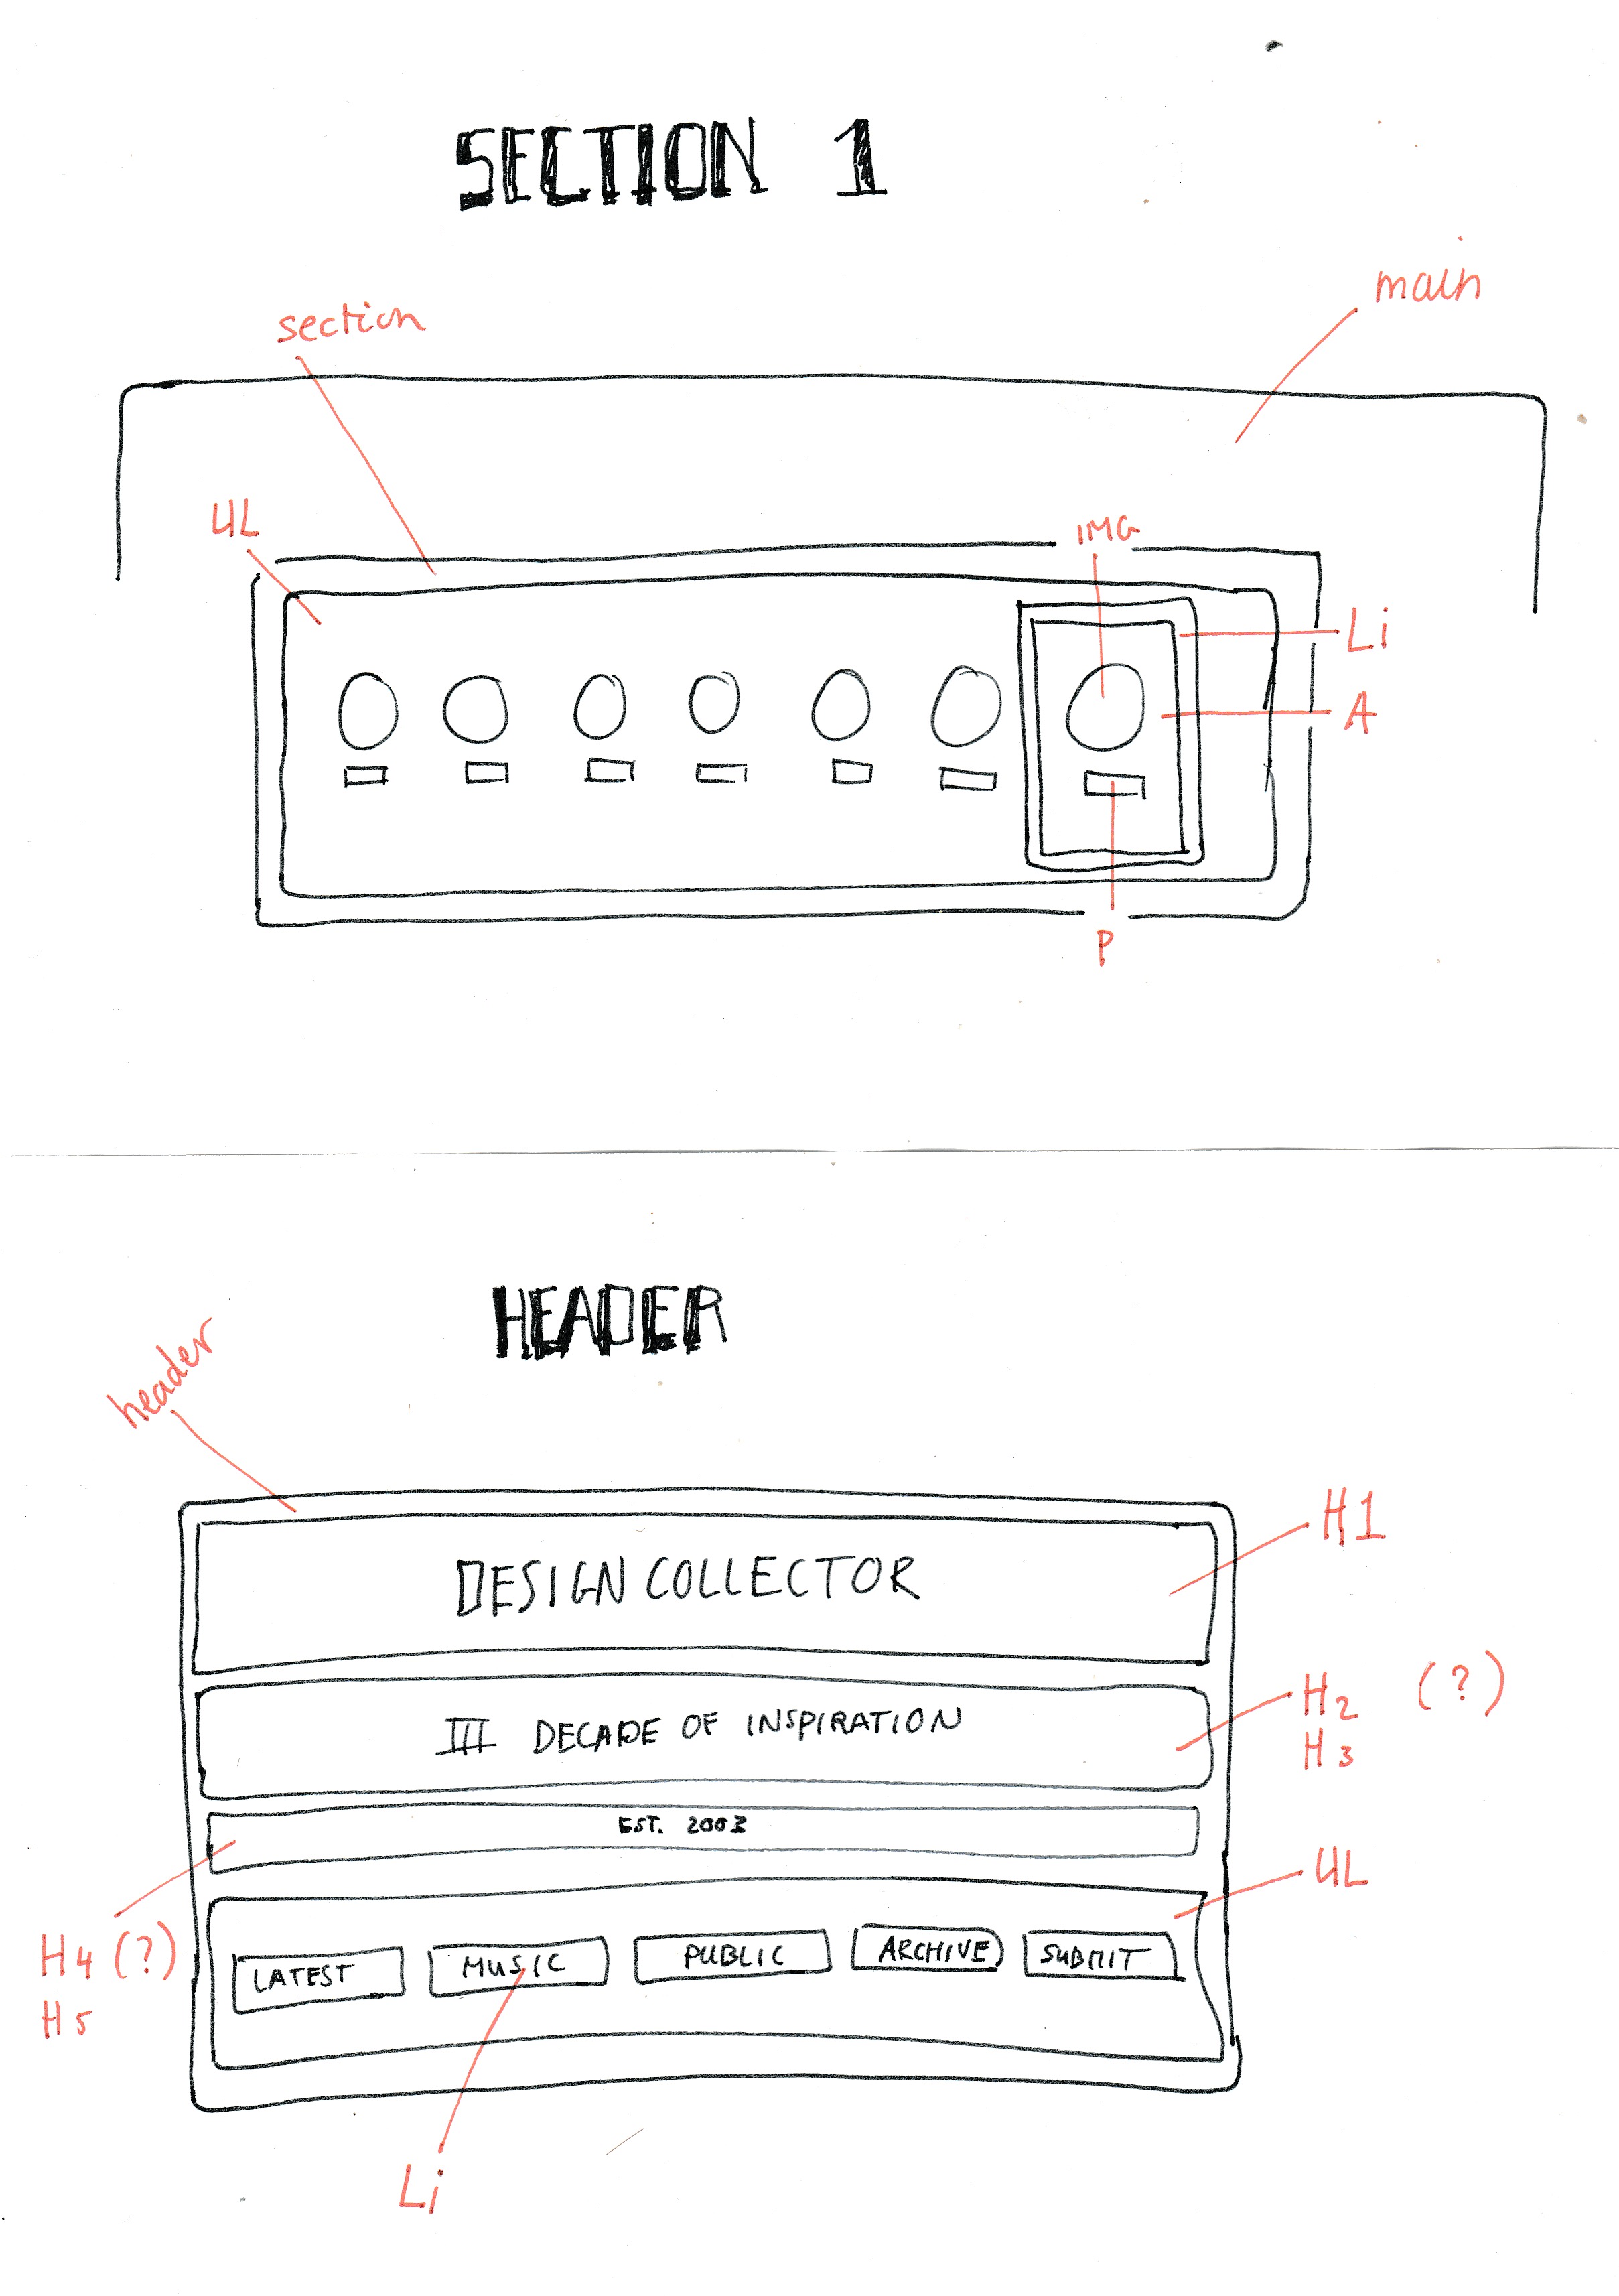 SECTION 1
section
main
UL
IMG
Li
A
P
HEADER
header
DESIGN COLLECTOR
H1
III DECADE OF INSPIRATION
H2 (?)
H3
EST. 2003
H4 (?)
H5
UL
LATEST
MUSIC
PUBLIC
ARCHIVE
SUBMIT
Li